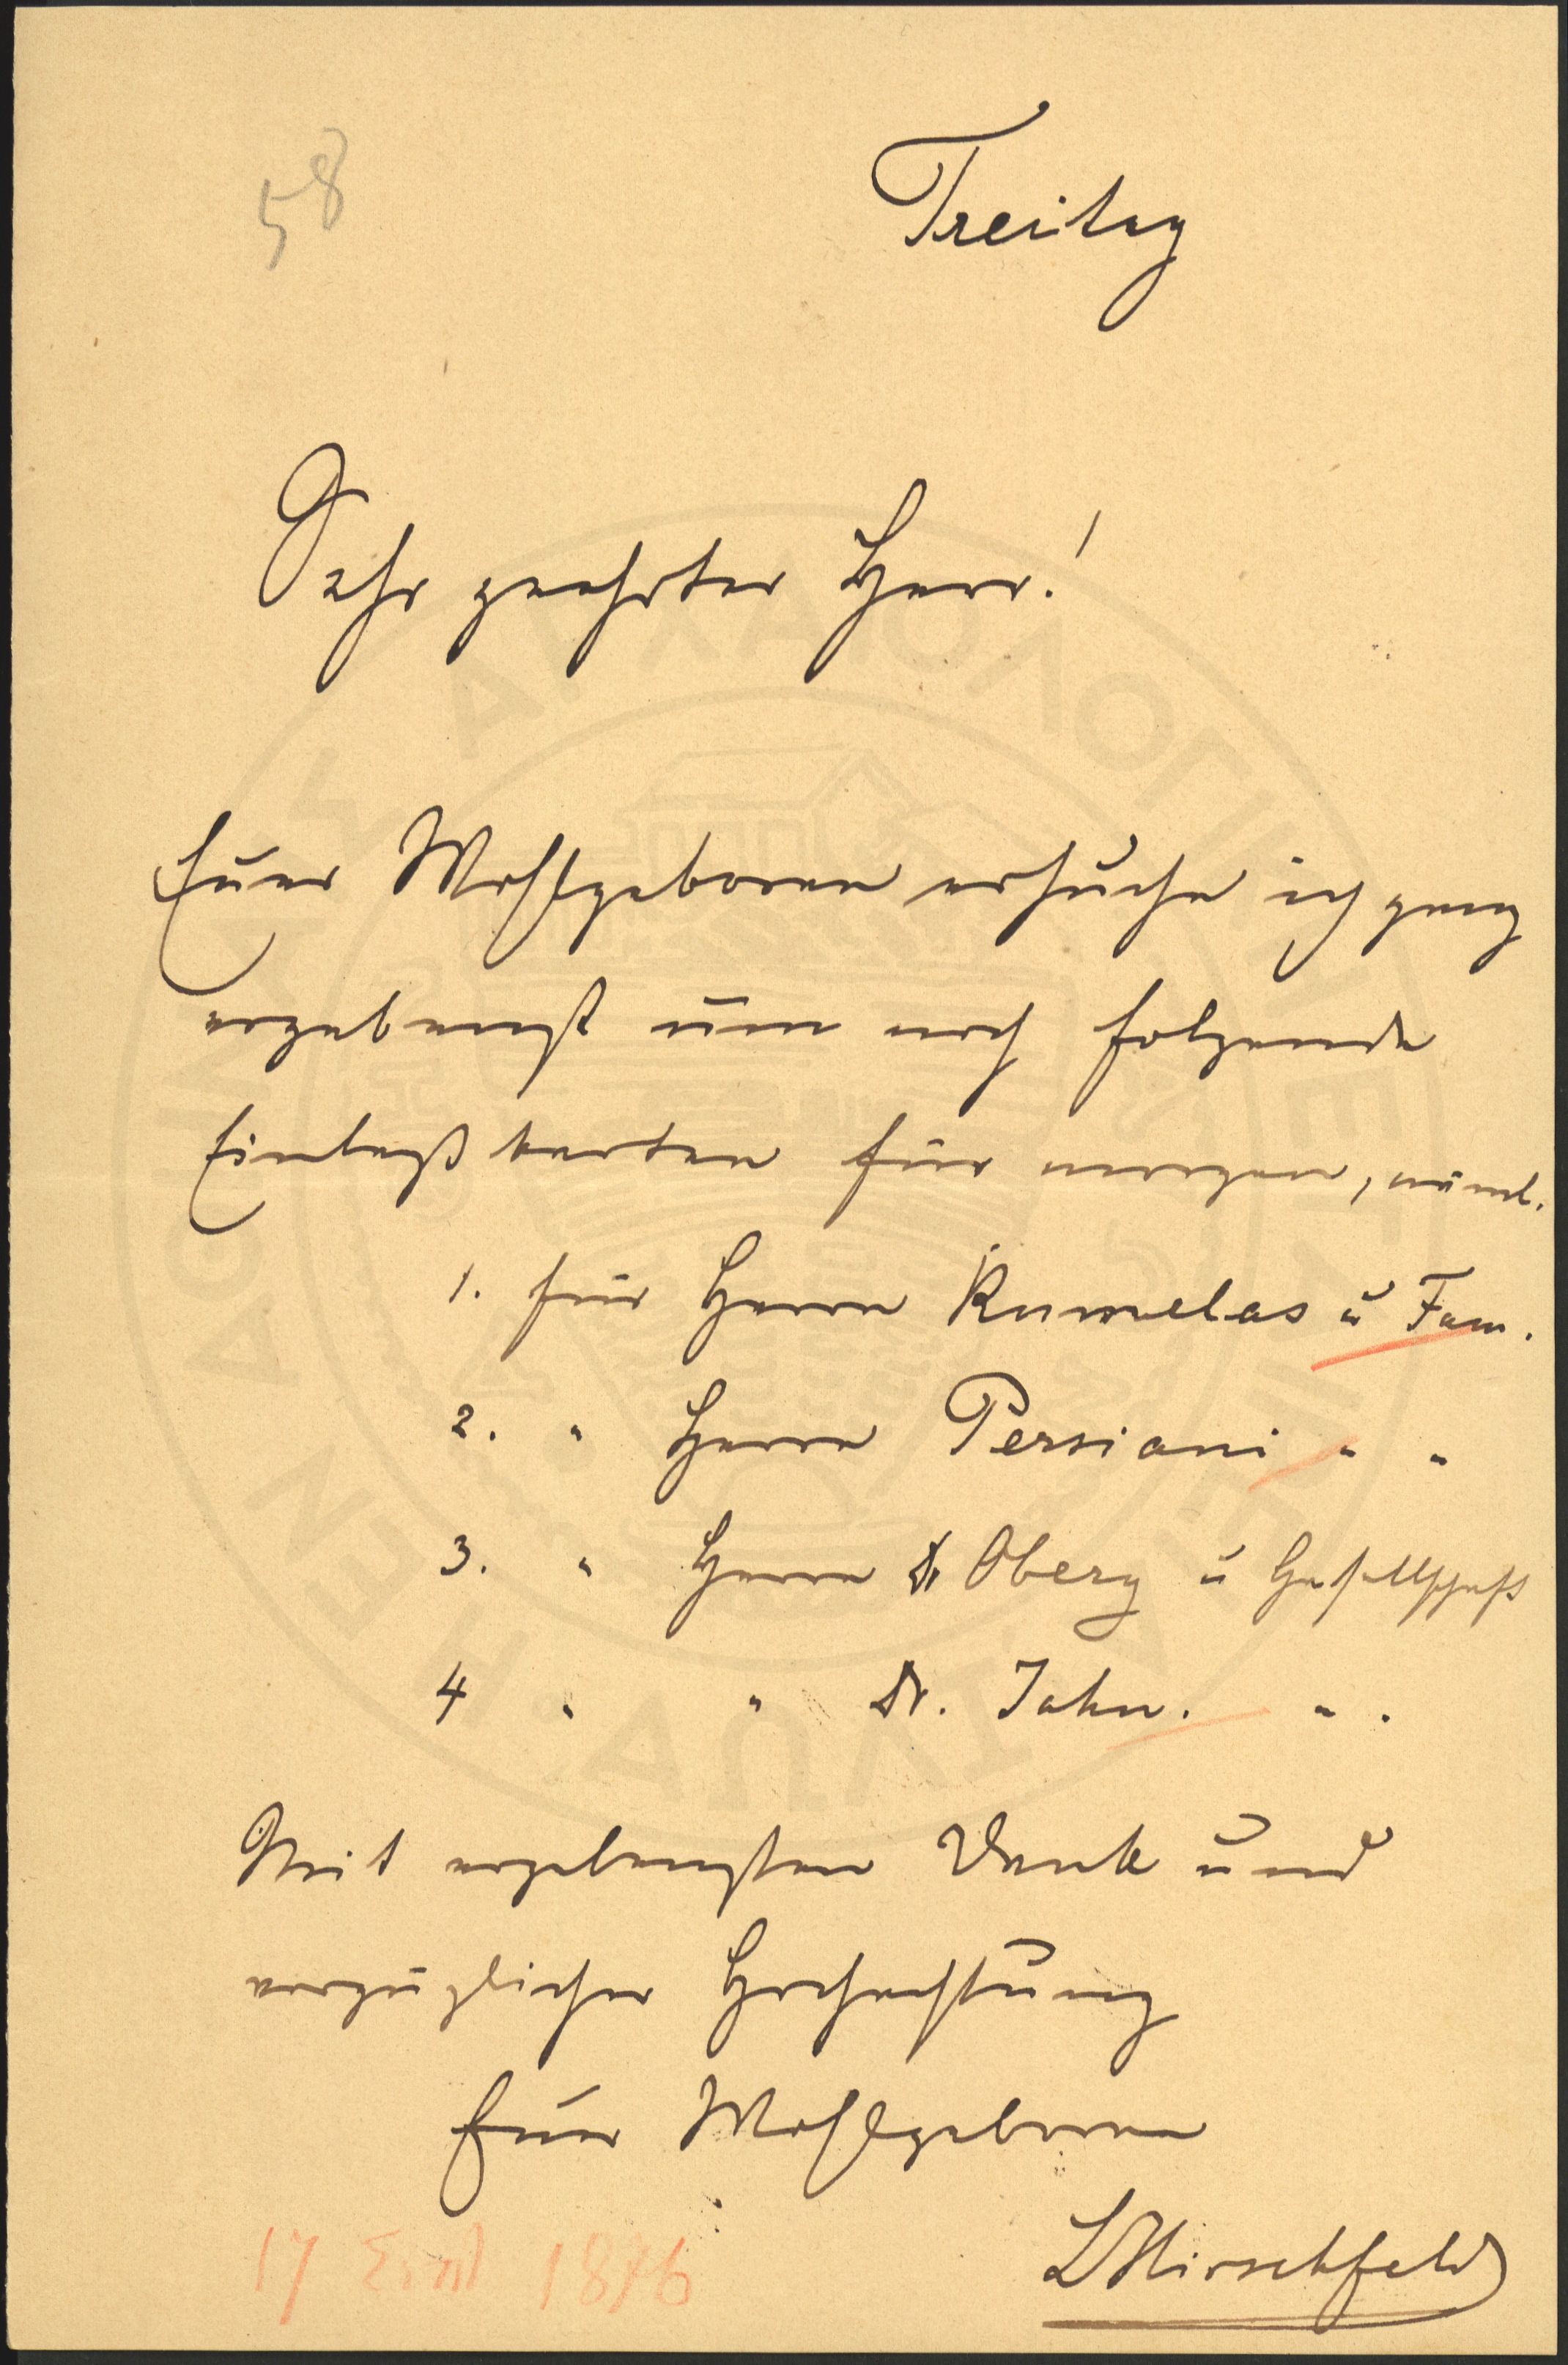 58
Freitag
Sehr geehrter Herr!
Euer Wohlgeboren ersuche ich ganz
ergebenst um noch folgende
Einlaßkarten für morgen, näml.
1. für Herrn Rumelas u Fam.
2. " Herrn Persiani " "
3. " Herrn Dr Oberg u Gesellschaft
4 " " Dr. Jahn. " "
Mit ergebensten Dank und
vorzüglicher Hochachtung
Euer Wohlgeboren
LHirschfeld
17 Σεπτ